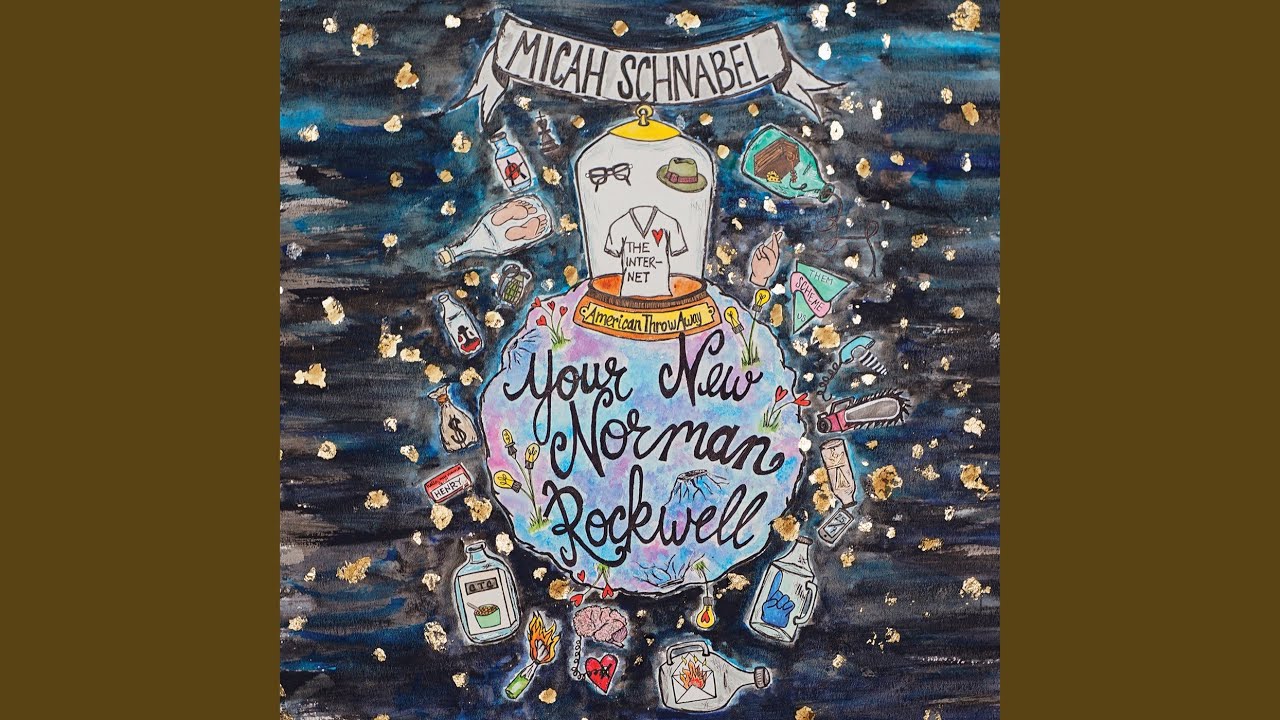 MICAH SCHNABEL
THE
INTER-
NET
THEM
SCHEME
US
American ThrowAway
Your New
Norman
Rockwell
HENRY
$